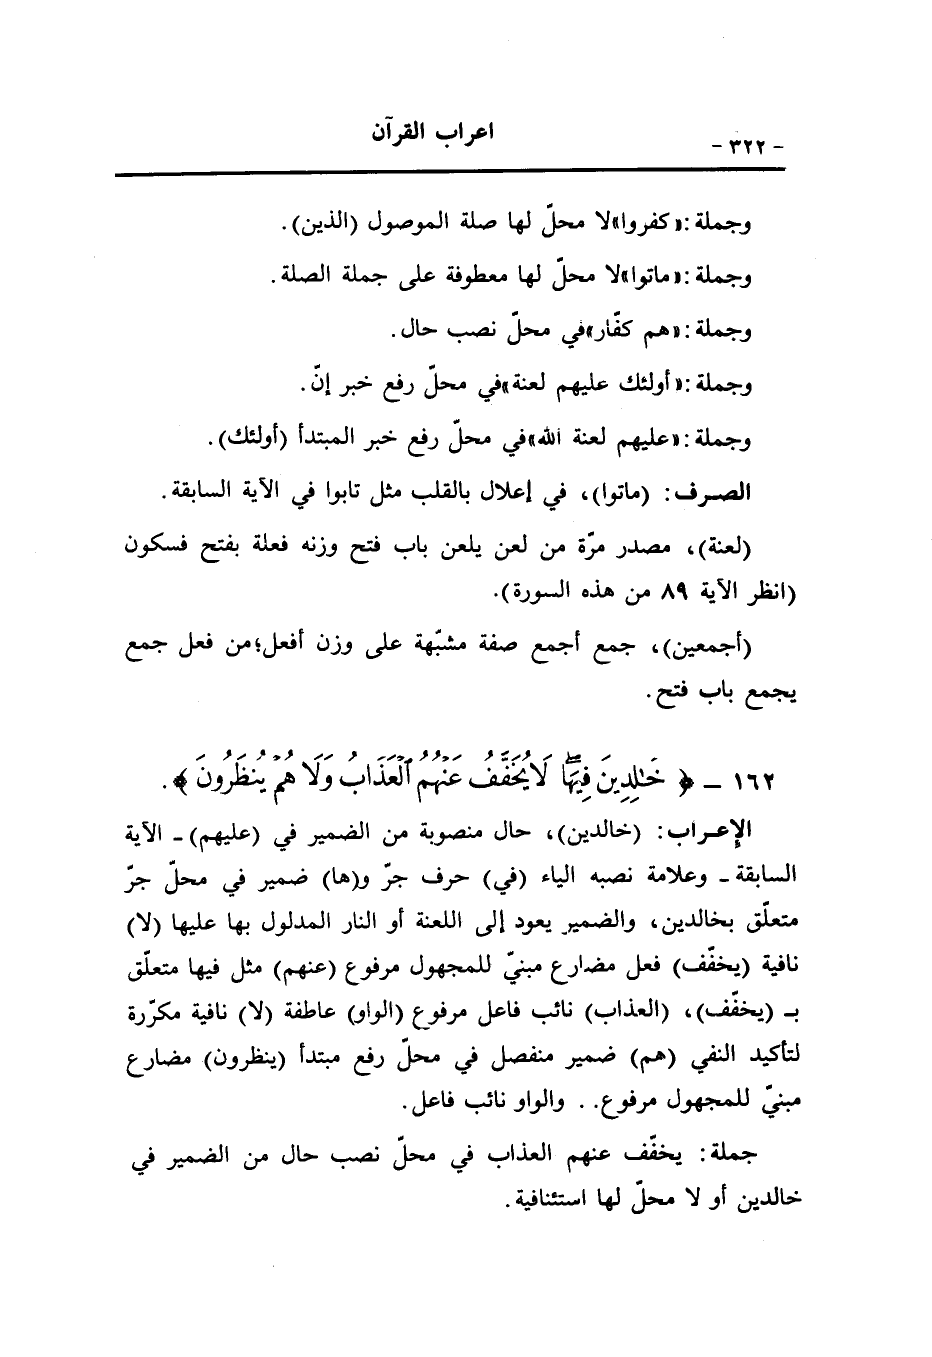 - ٣٢٢ -
اعراب القرآن
وجملة :«كفروا»لا محلّ لها صلة الموصول (الذين).
وجملة :«ماتوا»لا محلّ لها معطوفة على جملة الصلة.
وجملة :«هم كفّار»في محلّ نصب حال.
وجملة :«أولئك عليهم لعنة»في محلّ رفع خبر إنّ.
وجملة :«عليهم لعنة الله»في محلّ رفع خبر المبتدأ (أولئك).
الصرف: (ماتوا)، في إعلال بالقلب مثل تابوا في الآية السابقة.
(لعنة)، مصدر مرّة من لعن يلعن باب فتح وزنه فعلة بفتح فسكون
(انظر الآية ٨٩ من هذه السورة).
(أجمعين)، جمع أجمع صفة مشبّهة على وزن أفعل؛من فعل جمع
يجمع باب فتح.
١٦٢ - ﴿ خَٰلِدِينَ فِيهَاۖ لَا يُخَفَّفُ عَنْهُمُ ٱلْعَذَابُ وَلَا هُمْ يُنظَرُونَ ﴾.
الإعراب: (خالدين)، حال منصوبة من الضمير في (عليهم) - الآية
السابقة - وعلامة نصبه الياء (في) حرف جرّ و(ها) ضمير في محلّ جرّ
متعلّق بخالدين، والضمير يعود إلى اللعنة أو النار المدلول بها عليها (لا)
نافية (يخفّف) فعل مضارع مبنيّ للمجهول مرفوع (عنهم) مثل فيها متعلّق
بـ (يخفّف)، (العذاب) نائب فاعل مرفوع (الواو) عاطفة (لا) نافية مكرّرة
لتأكيد النفي (هم) ضمير منفصل في محلّ رفع مبتدأ (ينظرون) مضارع
مبنيّ للمجهول مرفوع. . والواو نائب فاعل.
جملة: يخفّف عنهم العذاب في محلّ نصب حال من الضمير في
خالدين أو لا محلّ لها استئنافية.